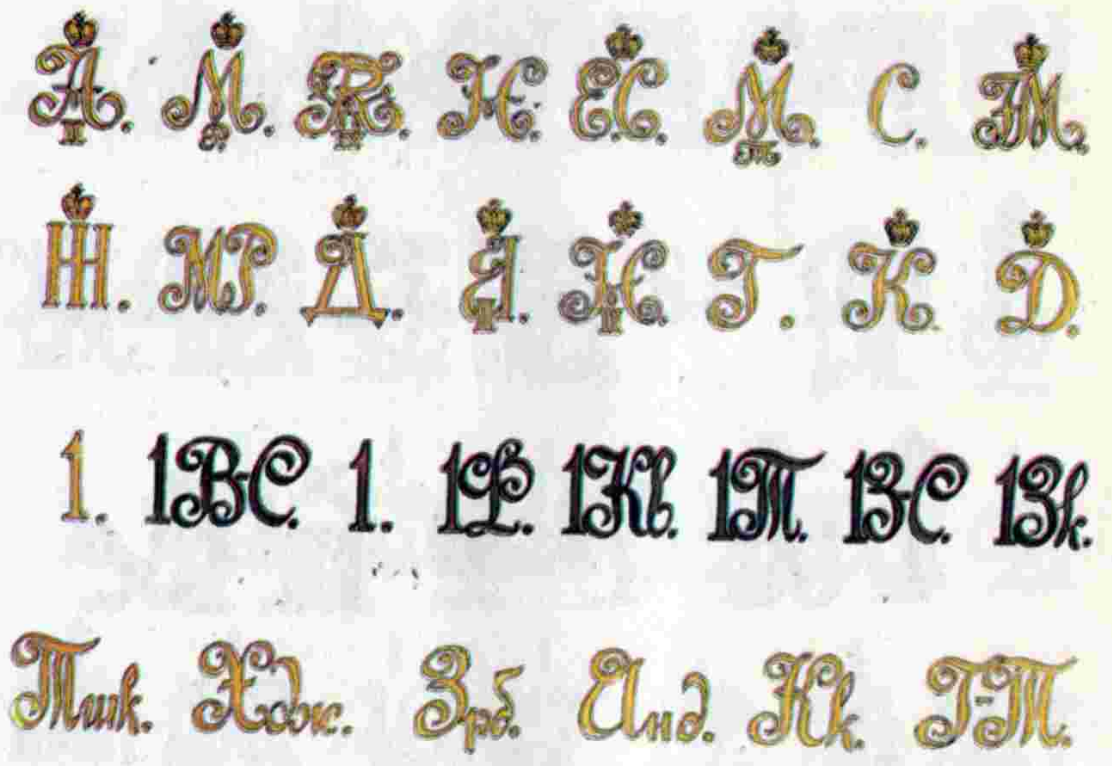 А. М. Н. Е.С. М. С.
Н. МР. Д. Н. Г. К. D.
1. 1В-С. 1. 1Кв. 1Т. 1З-С. 1Зк.
Тшк. Хдж. Зрб. Анд. Кк. Г-Т.